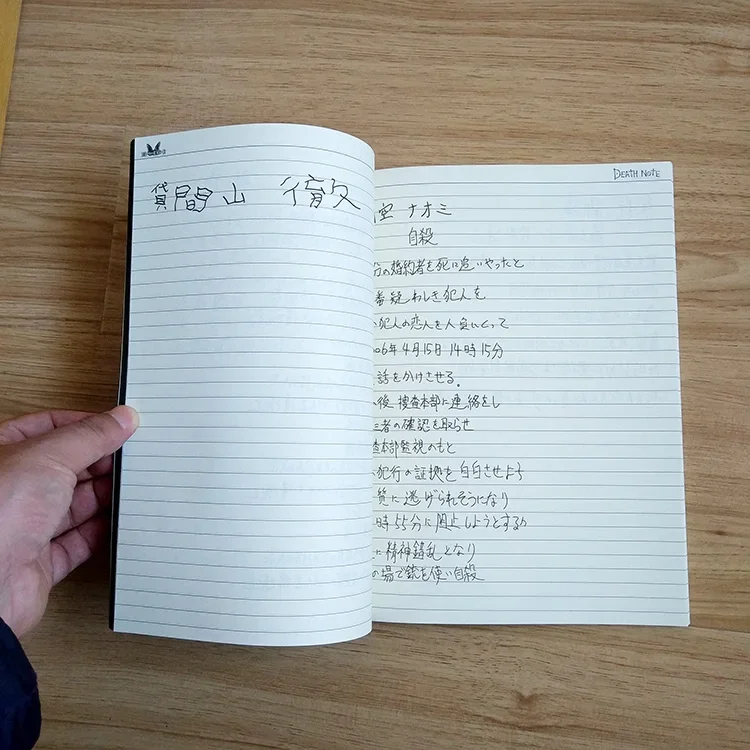 貸間山 徹
DEATH NOTE
空 ナオミ
自殺
分の婚約者を死に追いやったと
番疑わしき犯人を
犯人の恋人を人負にとって
06年4月15日 14時15分
話をかけさせる.
後、捜査本部に連絡をし
三者の確認を取らせ
査本部監視のもと
犯行の証拠を自白させよう
質に逃げられそうになり
時55分に阻止しようとするが
に精神錯乱となり
の場で銃を使い自殺